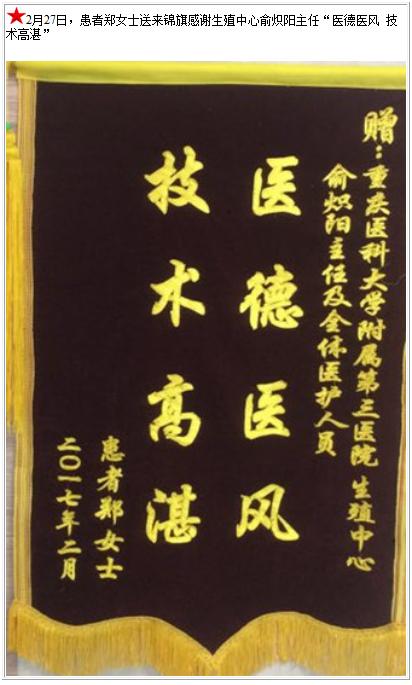 ★2月27日，患者郑女士送来锦旗感谢生殖中心俞炽阳主任“医德医风 技
术高湛”
赠：重庆医科大学附属第三医院 生殖中心
俞炽阳主任及全体医护人员
医德医风
技术高湛
患者郑女士
二〇一七年二月